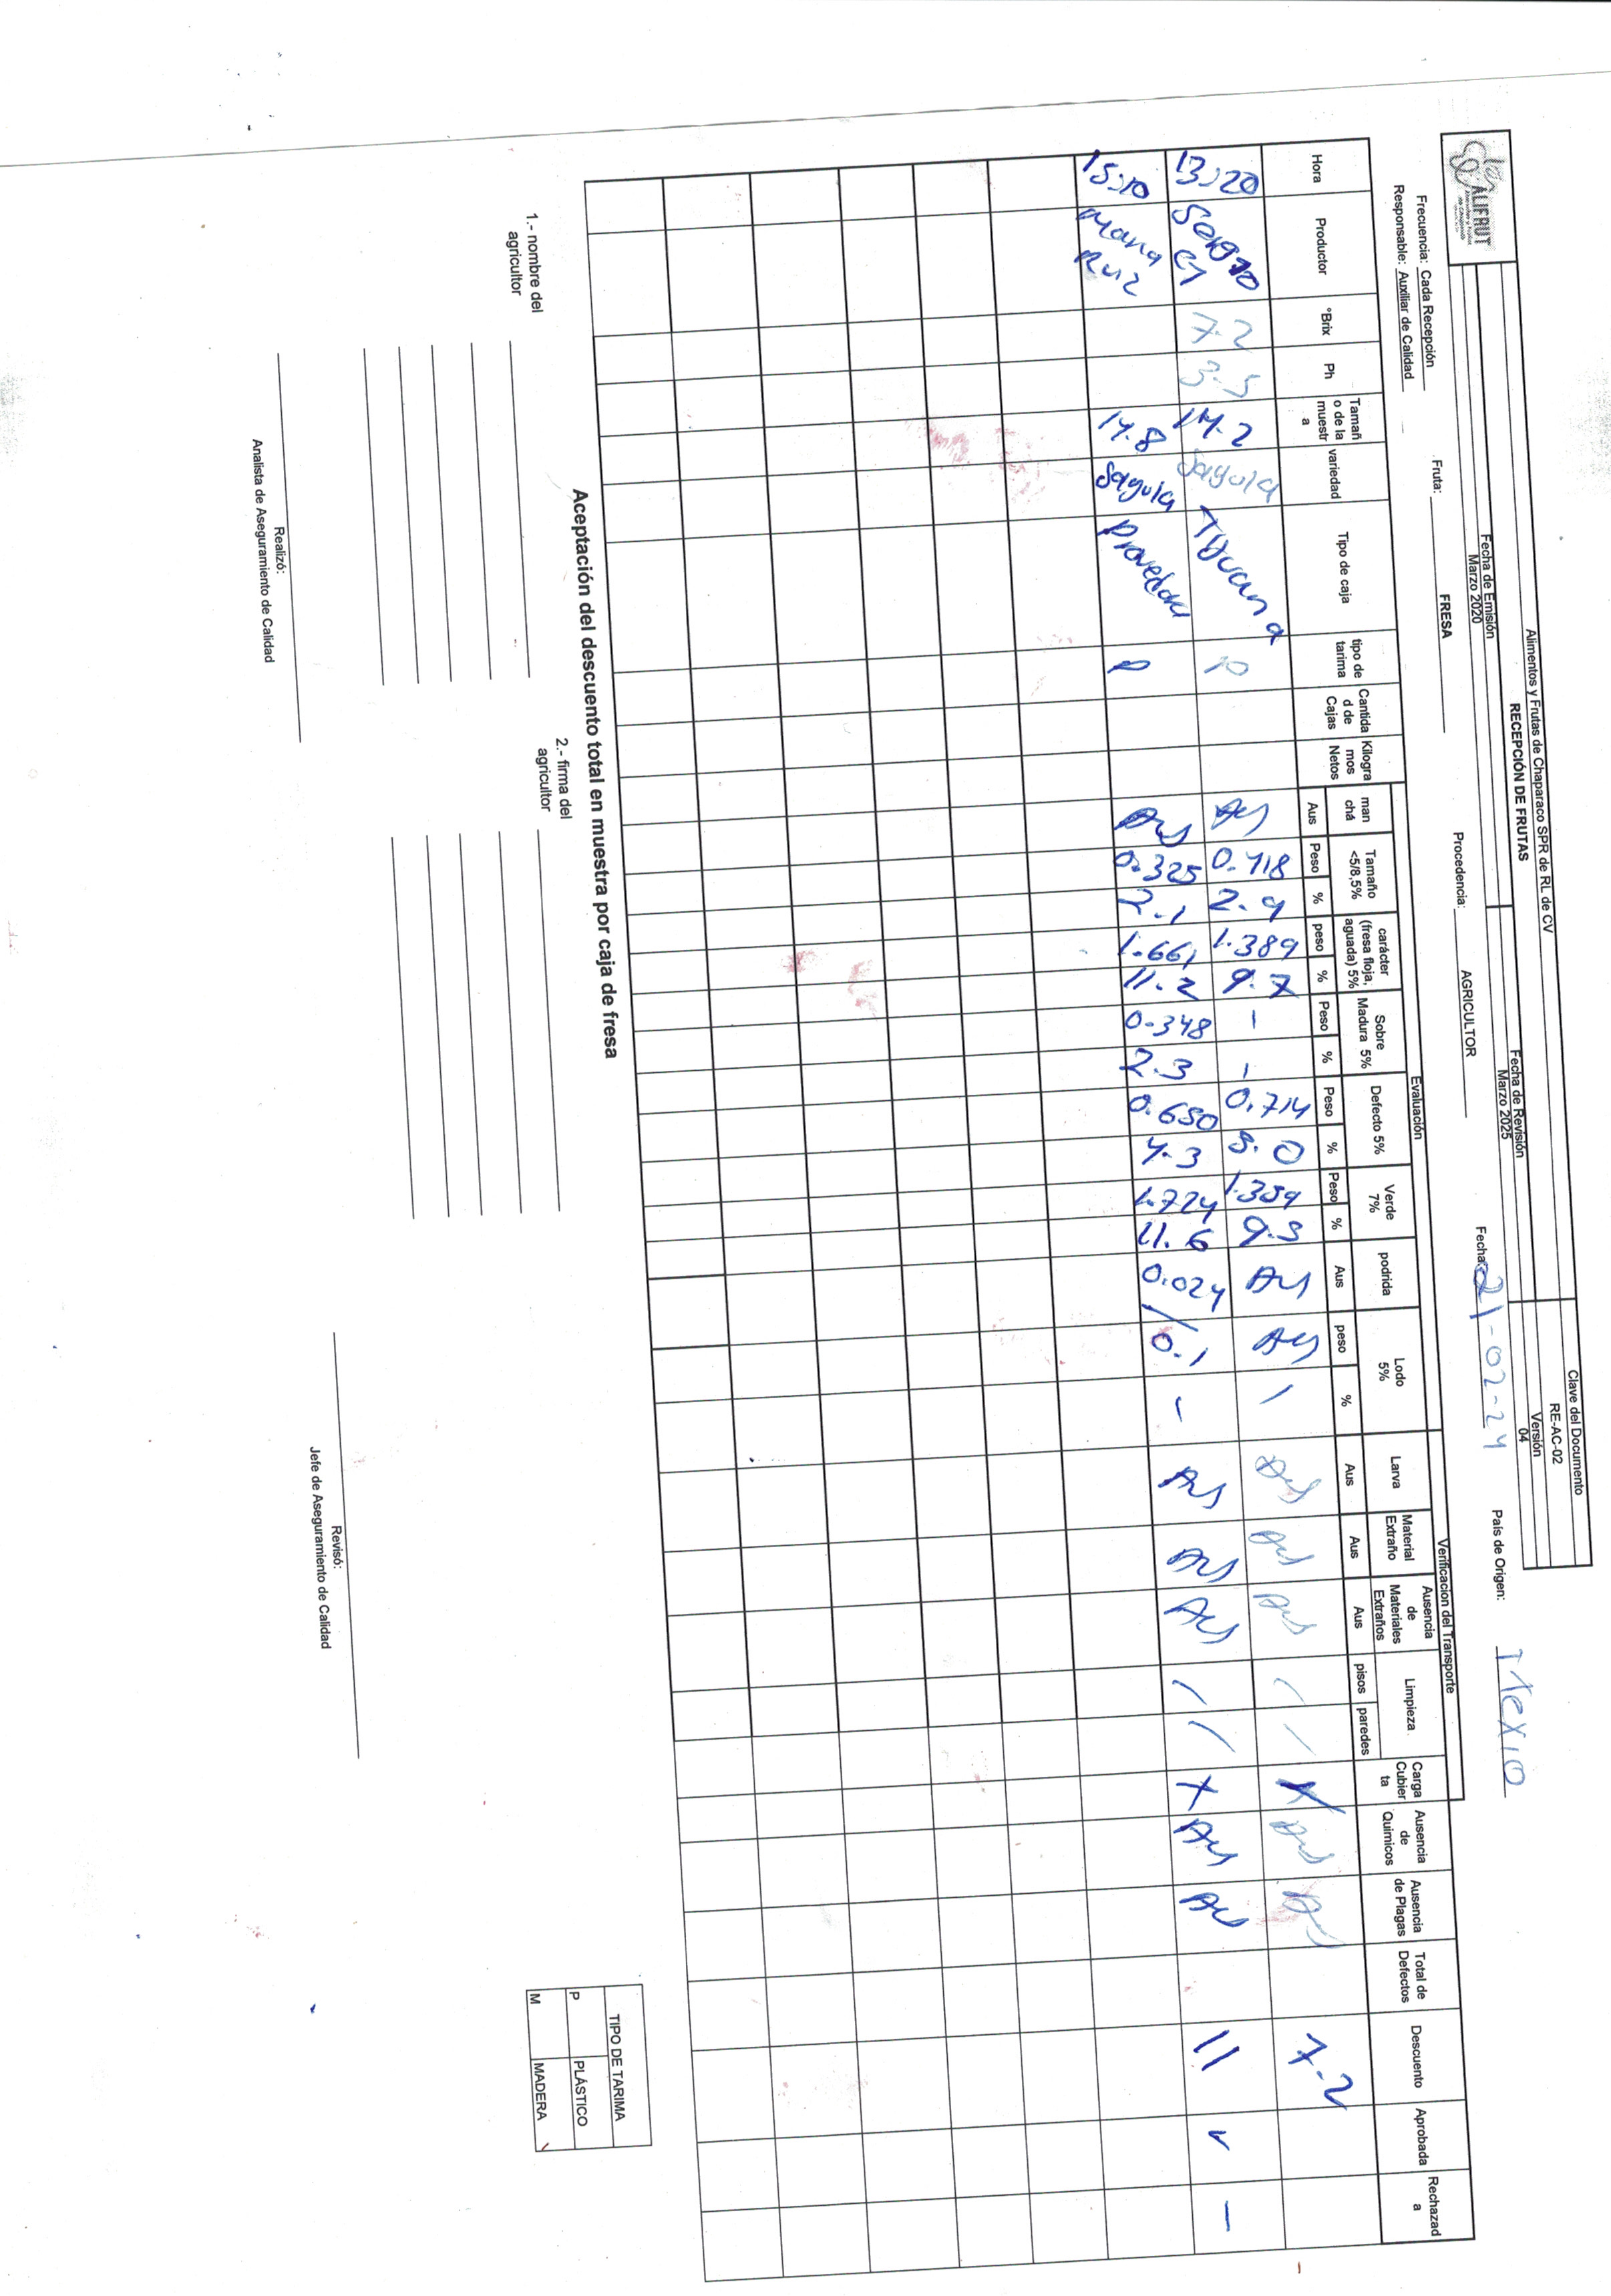 Alimentos y Frutas de Chaparaco SPR de RL de CV
RECEPCIÓN DE FRUTAS
Clave del Documento
RE-AC-02
Versión
04
Fecha de Emisión
Marzo 2020
Fecha de Revisión
Marzo 2025
ALIFRUT
Alimentos y Frutas
de Chaparaco
Frecuencia: Cada Recepción
Responsable: Auxiliar de Calidad
Fruta: FRESA
Procedencia: AGRICULTOR
Fecha: 21-02-24
País de Origen:
Evaluación
Verificacion del Transporte
Hora
Productor
°Brix
Ph
Tamañ
o de la
muestr
a
variedad
Tipo de caja
tipo de
tarima
Cantida
d de
Cajas
Kilogra
mos
Netos
man
chá
Aus
Tamaño
<5/8,5%
Peso %
carácter
(fresa floja,
aguada) 5%
peso %
Sobre
Madura 5%
Peso %
Defecto 5%
Peso %
Verde
7%
Peso %
podrida
Aus
Lodo
5%
peso %
Larva
Aus
Material
Extraño
Aus
Ausencia
de
Materiales
Extraños
Aus
Limpieza
pisos paredes
Carga
Cubier
ta
Ausencia
de
Quimicos
Ausencia
de Plagas
Total de
Defectos
Descuento
Aprobada
Rechazad
a
13:20 7.2 3.5 14.2 Tijuana P Aus 0.418 2.9 1.389 9.7 - - 0.714 5.0 1.359 9.5 Aus Aus / Aus Aus Aus / / X Aus Aus 7.2
15:10 Maria Ruiz 14.8 P Aus 0.325 2.1 1.661 11.2 0.348 2.3 0.650 4.3 1.724 11.6 0.024 / 0.1 - Aus Aus Aus / / X Aus Aus 11 ✓ -
Aceptación del descuento total en muestra por caja de fresa
1.- nombre del
agricultor
2.- firma del
agricultor
TIPO DE TARIMA
P PLÁSTICO
M MADERA
Realizó:
Analista de Aseguramiento de Calidad
Revisó:
Jefe de Aseguramiento de Calidad